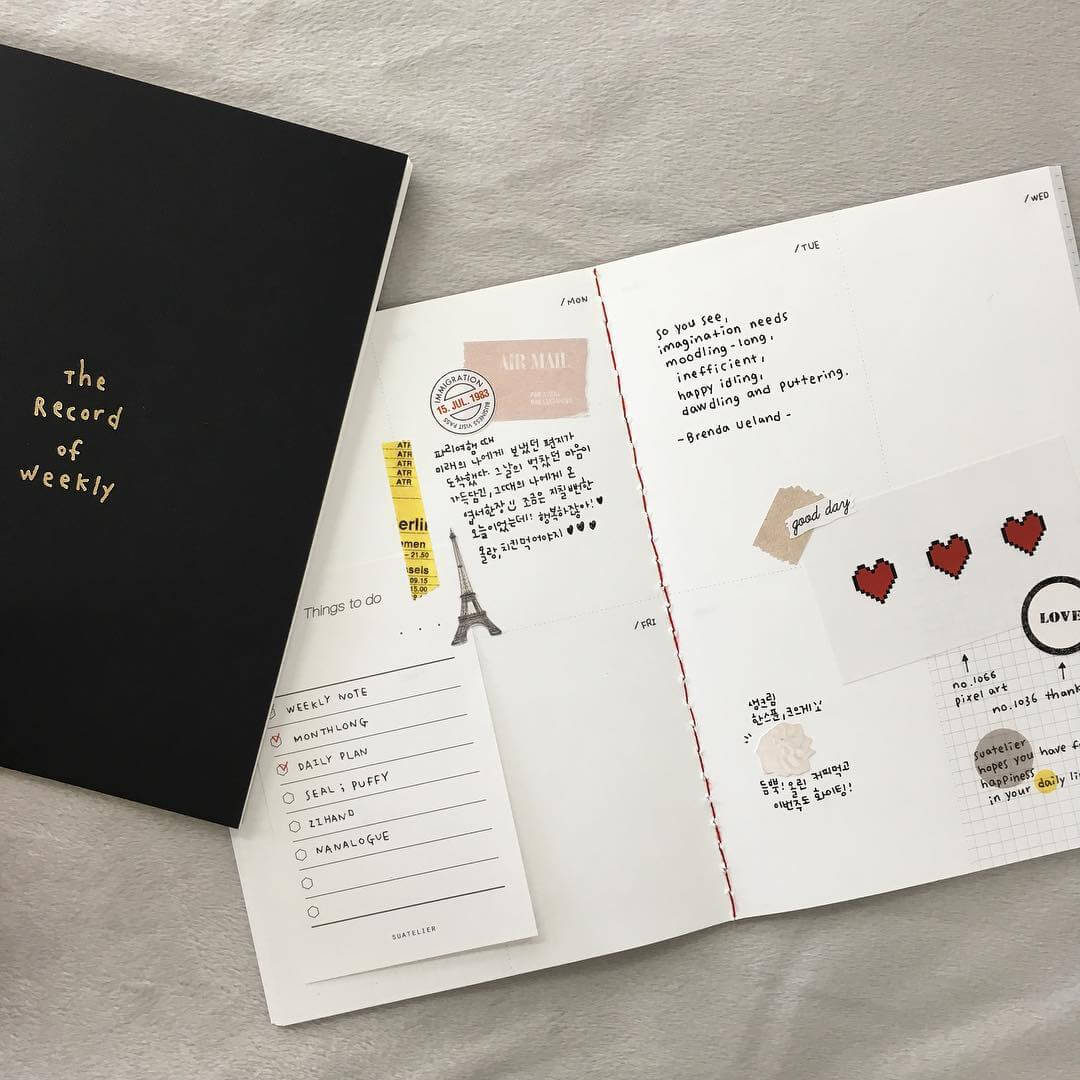 The
Record
of
Weekly
/MON
AIR MAIL
IMMIGRATION
15. JUL. 1983
BUSINESS VISIT PASS
파리여행 때
미래의 나에게 보냈던 편지가
도착했다. 그날의 벅찼던 마음이
가득담긴, 그때의 나에게 온
엽서한장!! 조금은 지칠뻔한
오늘이었는데! 행복하잖아! ♥
몰랑, 치킨먹어야지 ♥♥♥
ATR
ATR
ATR
ATR
erlin
emen
- 21.50
ssels
09.15
15.00
Things to do
WEEKLY NOTE
MONTHLONG
DAILY PLAN
SEAL ; PUFFY
ZZHAND
NANALOGUE
SUATELIER
/FRI
/TUE
/WED
so you see,
imagination needs
moodling-long,
inefficient,
happy idling,
dawdling and puttering.
-Brenda Ueland-
good day
LOVE
no.1066
pixel art
no.1036 thank
생크림
한스푼, 크으게
듬뿍! 올린 커피먹고
이번주도 화이팅!
suatelier have f
hopes you
happiness
in your daily li